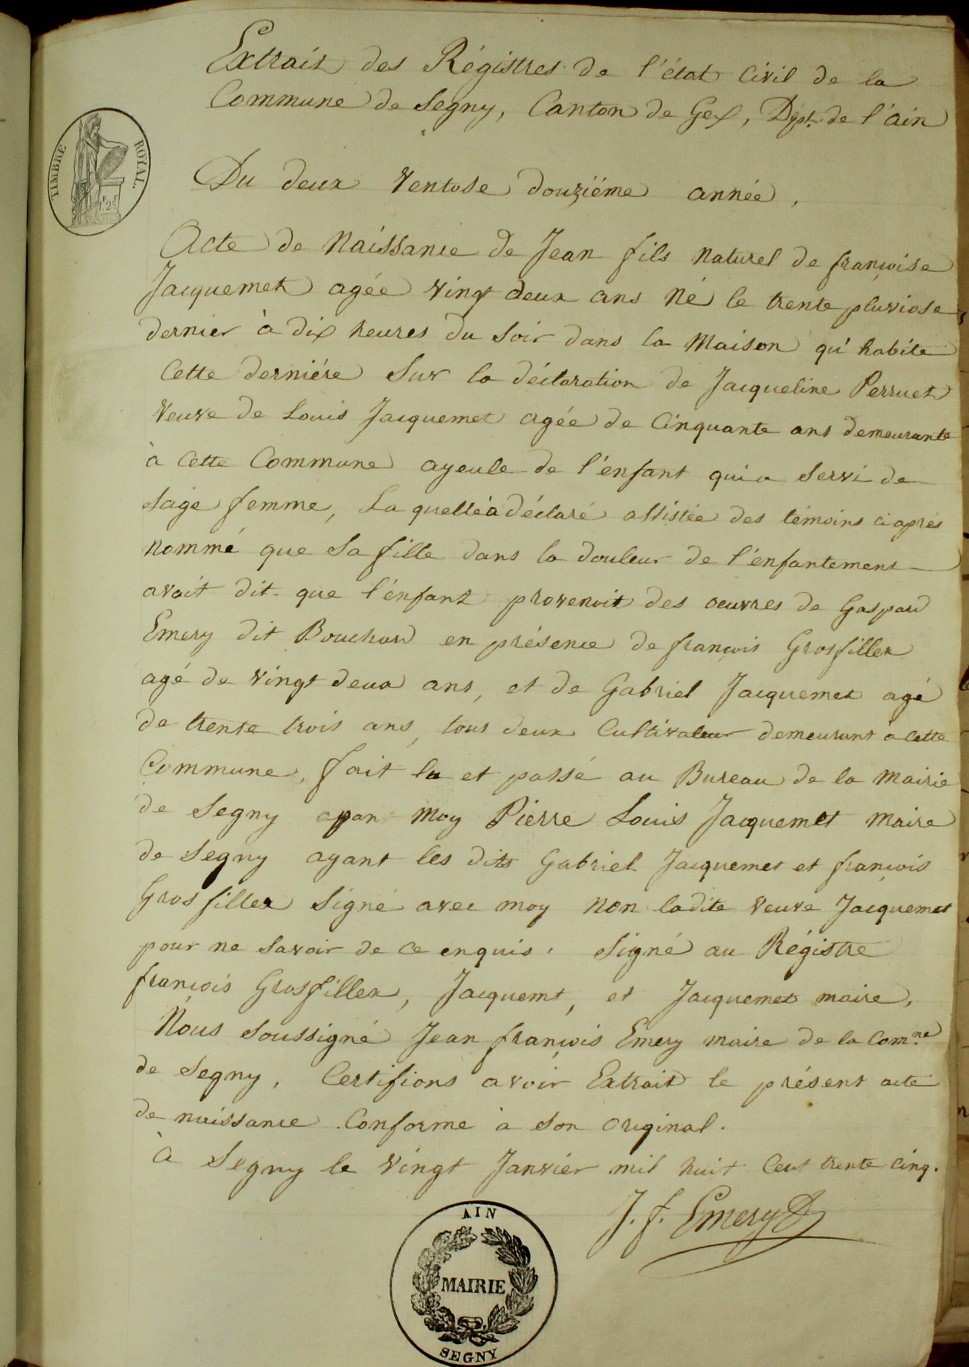 Extrait des Régistres de l'état Civil de la
Commune de Segny, Canton de Gex, Dépt. de l'ain
TIMBRE ROYAL.
Du deux Ventose douziéme année,
Acte de Naissance de Jean fils naturel de françoise
Jacquemet agée vingt deux ans né le trente pluviose
dernier à dix heures du Soir dans la Maison qu'habite
Cette derniére Sur la déclaration de Jacqueline Perruet
Veuve de Louis Jacquemet agée de Cinquante ans demeurante
à Cette Commune ayeule de l'enfant qui a Servi de
Sage femme, La quelle à déclaré assistée des témoins ci aprés
nommé que Sa fille dans la douleur de l'enfantement
avoit dit que l'énfant provenoit des oeuvres de Gaspard
Emery dit Bouchard en présence de françois Grosfiller
agé de Vingt deux ans, et de Gabriel Jacquemet agé
de trente trois ans, tous deux Cultivateur demeurant à cette
Commune, fait lu et passé au Bureau de la Mairie
de Segny par Moy Pierre Louis Jacquemet maire
de Segny ayant les dits Gabriel Jacquemet et françois
Grosfiller Signé avec moy non ladite Veuve Jacquemet
pour ne Savoir de ce enquis. Signé au Régistre
françois Grosfiller, Jacquemt, et Jacquemet maire,
Nous Soussigné Jean françois Emery maire de la Com.ne
de Segny, Certifions avoir Extrait le présent acte
de naissance Conforme à Son Original.
à Segny le Vingt Janvier mil huit Cent trente cinq.
J. f. Emery
AIN
MAIRIE
SEGNY